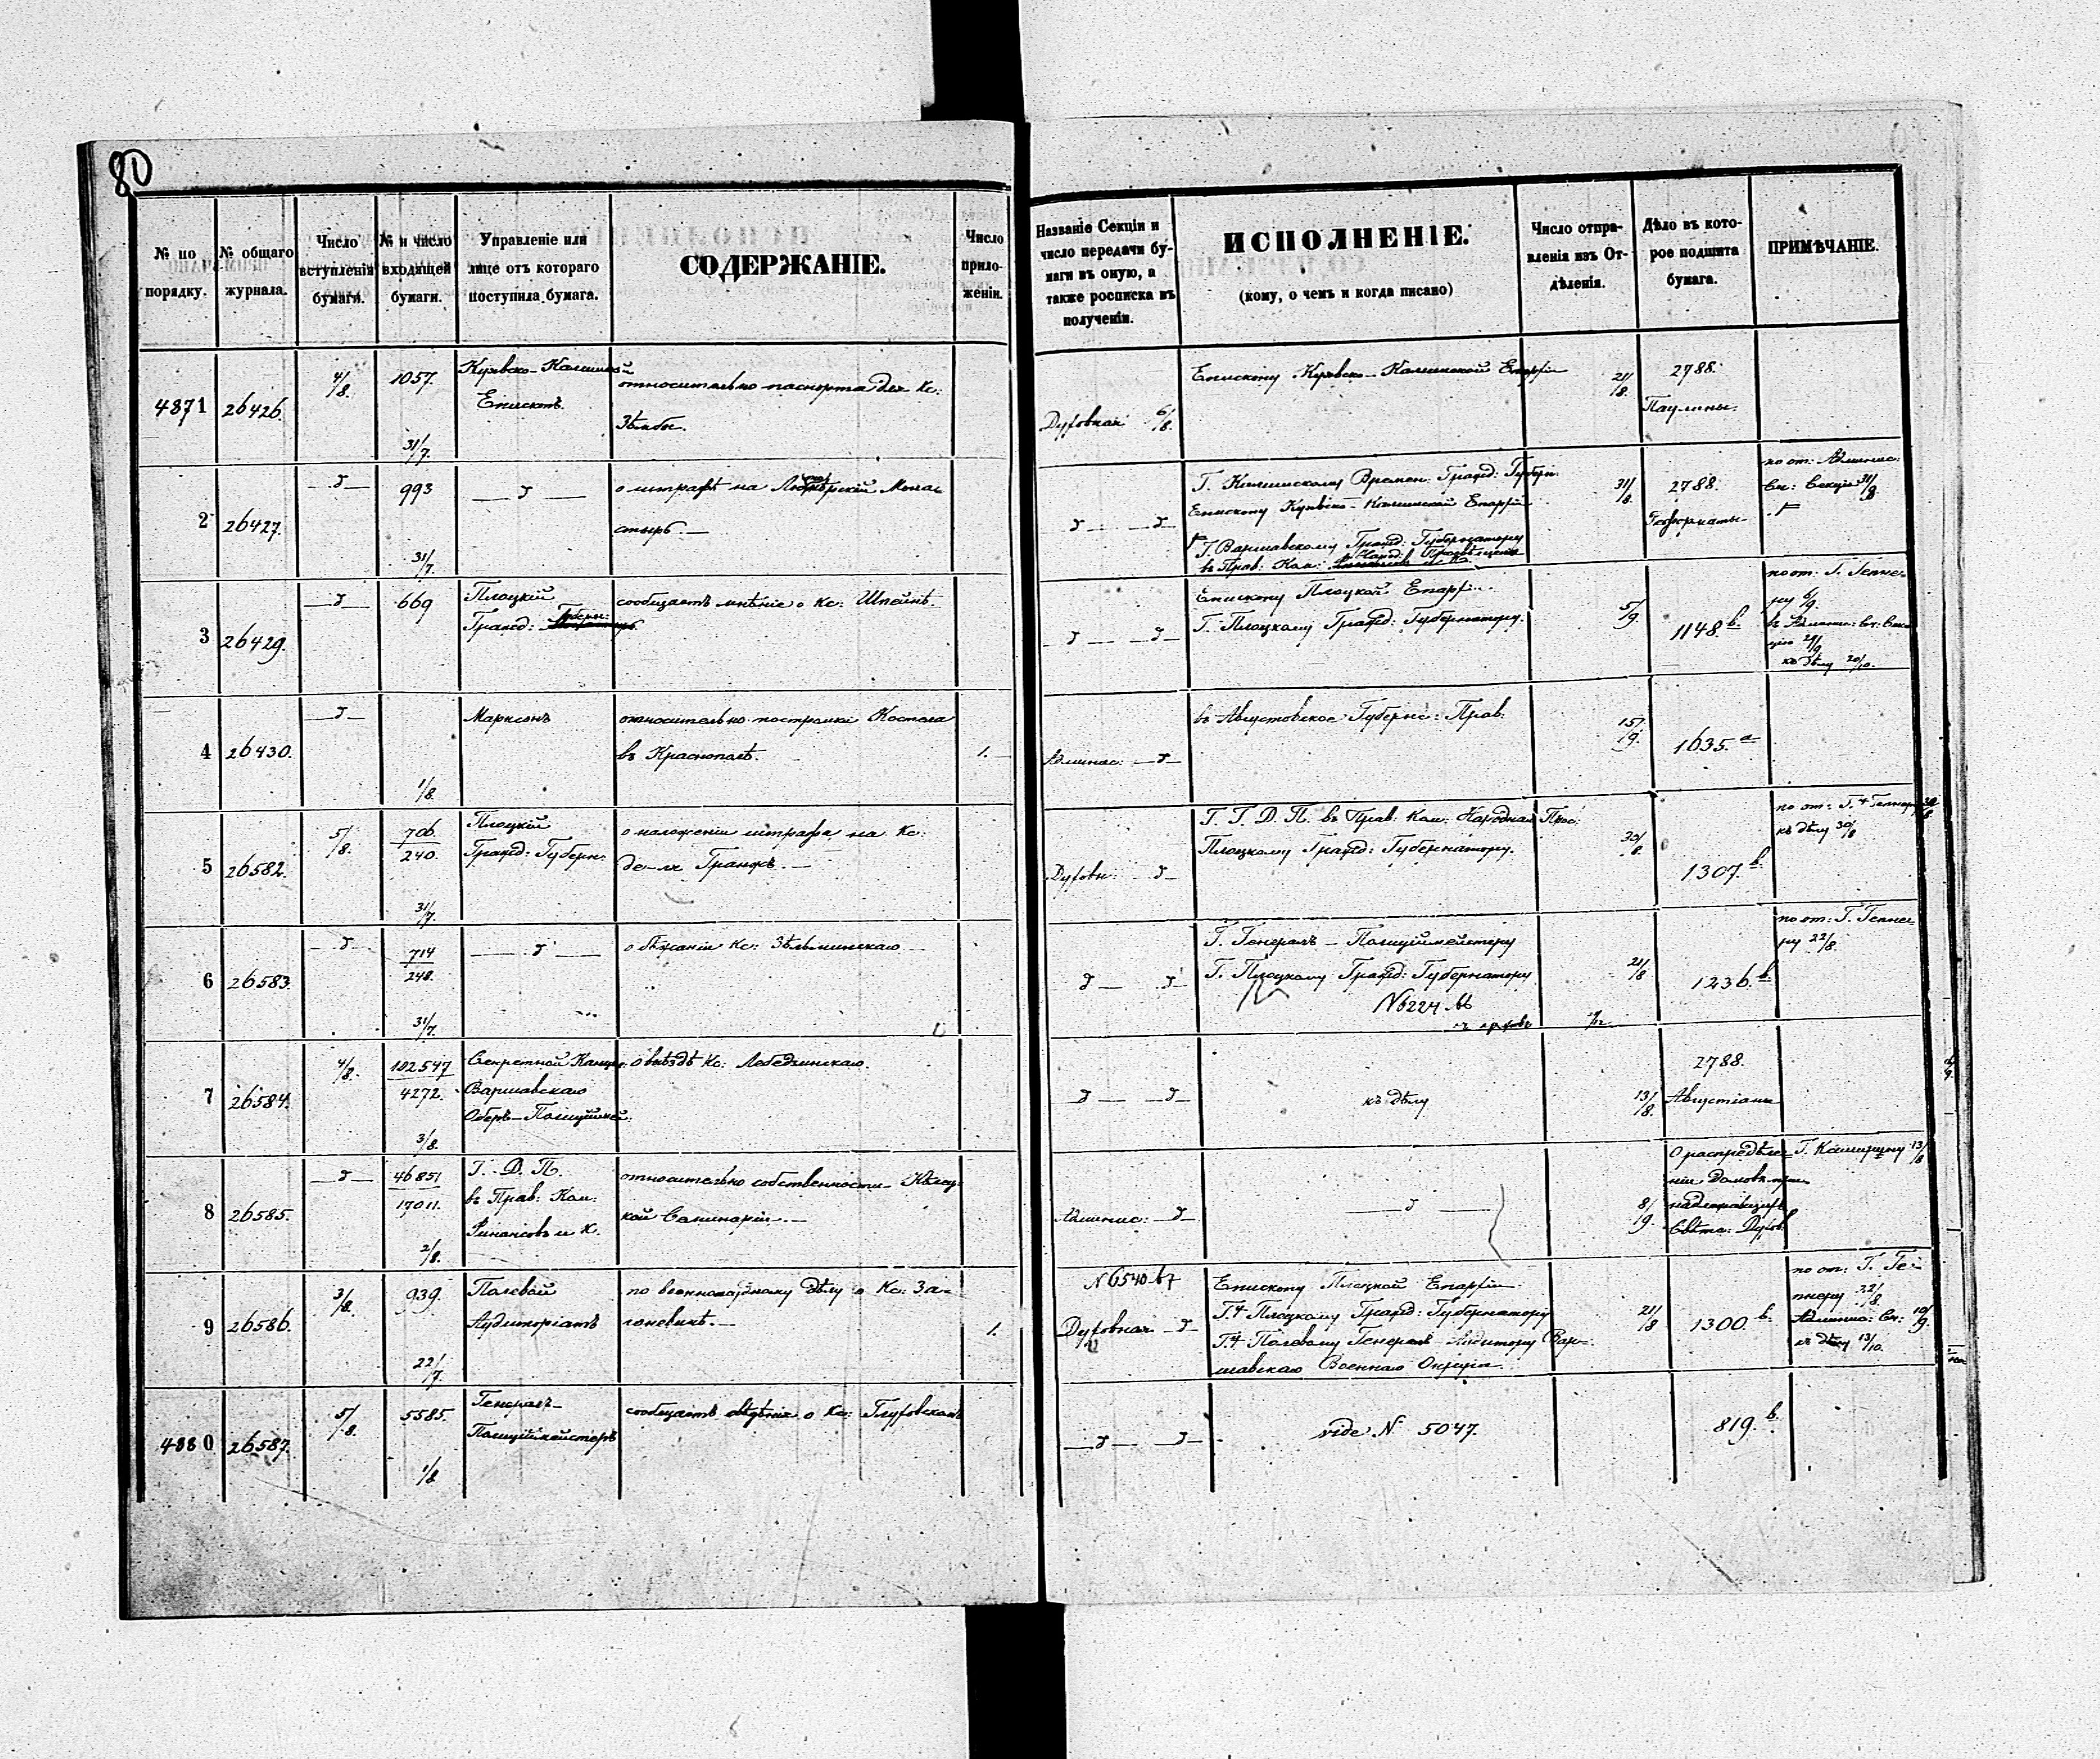 80
№ по порядку.
№ общаго журнала.
Число вступленія бумаги.
№ и число входящей бумаги.
Управленіе или лице отъ котораго поступила бумага.
СОДЕРЖАНІЕ.
Число приложеній.
Названіе Секціи и число передачи бумаги въ оную, а также росписка въ полученіи.
ИСПОЛНЕНІЕ.
(кому, о чемъ и когда писано)
Число отправленія изъ Отдѣленія.
Дѣло въ которое подшита бумага.
ПРИМѢЧАНІЕ.
4871 26426. 4/8. 1057. 31/7.
Куявско-Калишскій
Епископъ.
относительно паспорта для Кс:
Зѣмбы.
Духовная 6/8.
Епископу Куявско-Калишской Епархіи
21/8.
2788.
Паулины.
2 26427. —д— 993 31/7.
—д—
о штрафѣ на Монастырь.—
д— —д
Г. Калишскому Времен. Гражд: Губерн.
Епископу Куявско-Калишской Епархіи
Г. Варшавскому Гражд: Губернатору
въ Прав. Ком: Народ: Просвѣщенія
31/8.
2788.
по от: Админис:
Сп: Секціи 31/8
3 26429. —д— 669
Плоцкій
Гражд: Губерн:
сообщаетъ мнѣніе о Кс: Шпейнѣ.
д— —д—
Епископу Плоцкой Епархі..
Г. Плоцкому Гражд: Губернатору.
5/9.
1148.в.
по от: Г. Геппнеру 6/9.
къ дѣлу 20/10.
4 26430. —д— 1/8.
Марксонъ
относительно постройки Костела
въ Краснополѣ.
1.—
Админис: —д—
въ Августовское Губернс: Прав:
15/9.
1635.а
5 26582. 5/8. 706. 240. 31/7.
Плоцкій
Гражд: Губерн:
о наложеніи штрафа на Кс:
де-ля Гранжъ.—
Духовн: —д—
Г. Г. Д. П. въ Прав. Ком. Народнаго Прос:
Плоцкому Гражд: Губернатору.
30/8.
1307.в
къ дѣлу 30/8
6 26583. —д— 714 248. 31/7.
—д—
о бѣжаніи Кс: Зѣлминскаго—
д— д—
Г. Генералъ-Полиціймейстеру
Г. Плоцкому Гражд: Губернатору
N 6224
21/8
1236.в.
по от: Г. Геппнеру 22/8.
7 26584. 4/8. 102547 4272. 3/8.
Секретной Канцел:
Варшавскаго
Оберъ-Полиціймей:
о выѣздѣ Кс: Лебедзинскаго.
д— —д—
къ дѣлу
13/8.
2788.
Августіане
8 26585. —д— 46851 17011. 2/8.
Г. Д. П.
въ Прав: Ком:
Финансовъ и К.
относительно собственности Кѣлецкой Семинаріи.—
Админис: —д—
—д—
8/19.
О распредѣленіи Домовъ принадлежащихъ
Свѣтс: Духов:
13/8
9 26586. 3/8. 939. 22/7.
Полевой
Аудиторіатъ
по военносудному дѣлу о Кс: Залоневичѣ.—
1.
N 6540
Духовная —д
Епископу Плоцкой Епархіи
Г. Плоцкому Гражд: Губернатору
Г. Полевому Генералъ Аудитору Варшавскаго Военнаго Округа.
21/8
1300.в.
по от: Г. Геппнеру 22/8.
10/9.
къ дѣлу 13/10.
4880 26587. 5/8. 5585. 1/8
Генералъ-
Полиціймейстеръ
сообщаетъ свѣдѣніе о Кс: Глуховскомъ
—д— д—
vide N 5047.
819.в.